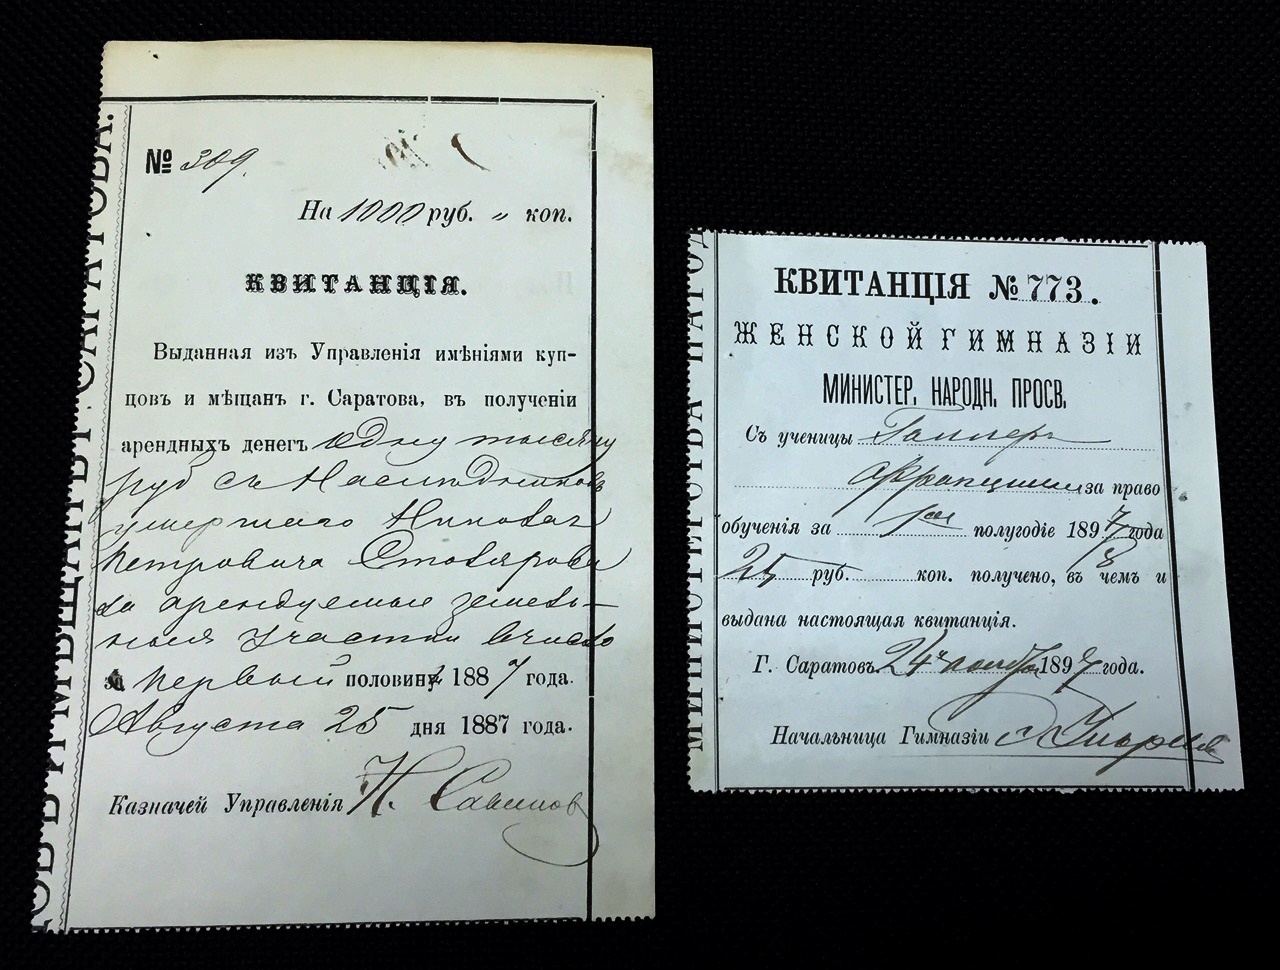 ЦОВЪ И МѢЩАНЪ Г. САРАТОВА.
№ 309.
На 1000 руб. „ коп.
КВИТАНЦІЯ.
Выданная изъ Управленія имѣніями куп-
цовъ и мѣщанъ г. Саратова, въ полученіи
арендныхъ денегъ одну тысячу
руб съ Наследниковъ
умершаго
Петровича Столярова
за арендуемые земель-
ные участки
за первый половину 1887 года.
Августа 25 дня 1887 года.
Казначей Управленія Н. Савинов
МИНИСТЕРСТВА НАРОД
КВИТАНЦІЯ № 773.
ЖЕНСКОЙ ГИМНАЗІИ
МИНИСТЕР. НАРОДН. ПРОСВ.
Съ ученицы
за право
обученія за 1ое полугодіе 1897/8 года
25 руб. коп. получено, въ чемъ и
выдана настоящая квитанція.
Г. Саратовъ. 24 ноября 1897 года.
Начальница Гимназіи